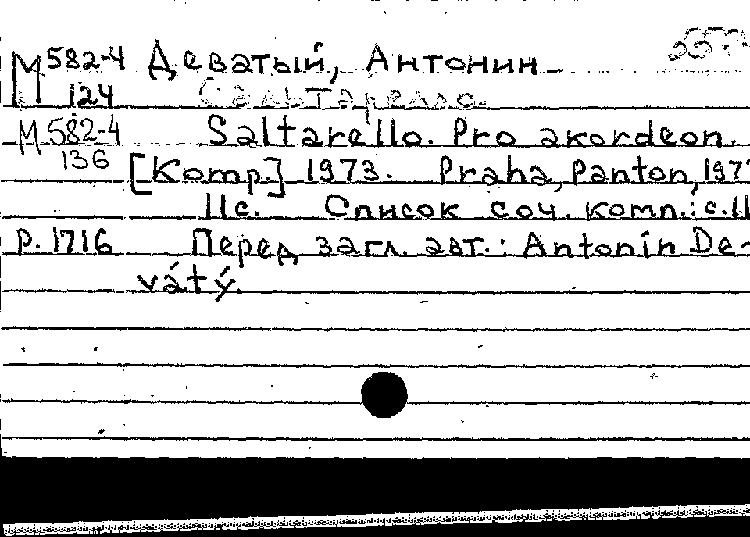 М 582-4 Деватый, Антонин
124 Сальтарелло.
М 582-4 Saltarello. Pro akordeon.
136 [Komp.] 1973. Praha, Panton, 197
11с. Список соч. комп.: с.11
Р. 1716 Перед загл. авт.: Antonín De-
vátý.